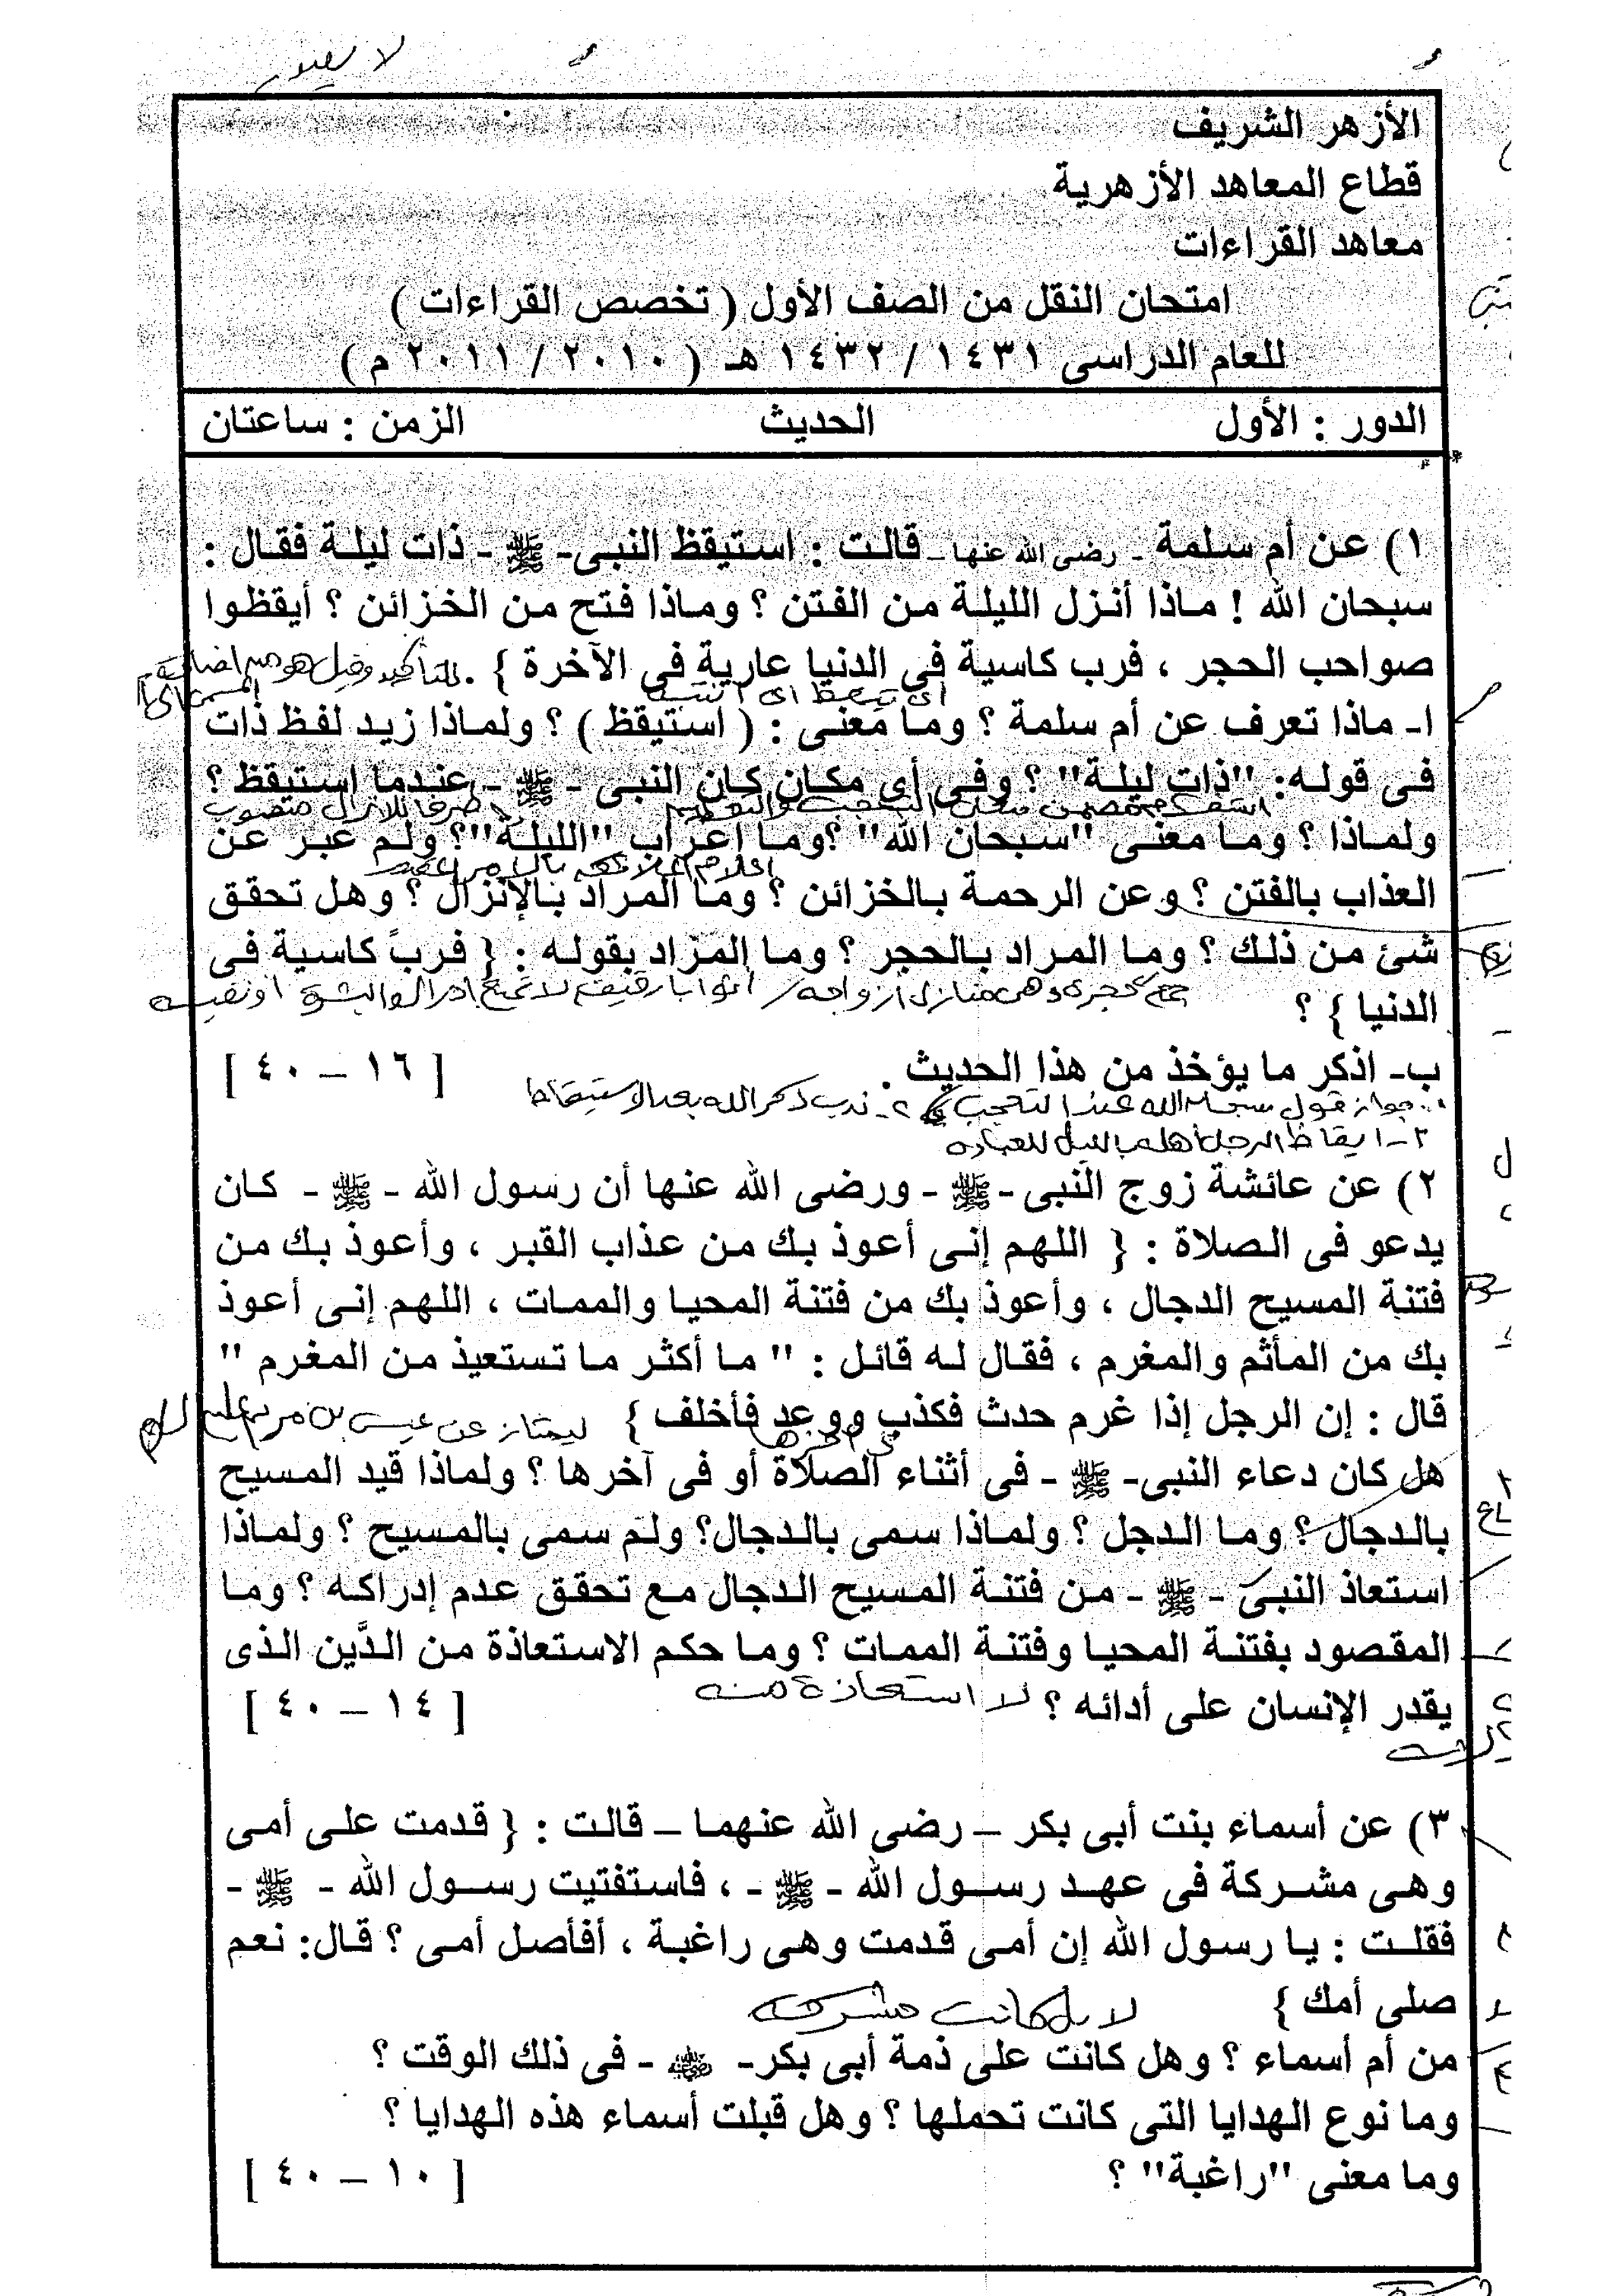 لا يصور
الأزهر الشريف
قطاع المعاهد الأزهرية
معاهد القراءات
امتحان النقل من الصف الأول ( تخصص القراءات )
للعام الدراسى ١٤٣١ / ١٤٣٢ هـ ( ٢٠١٠ / ٢٠١١ م )
الدور : الأول الحديث الزمن : ساعتان
١) عن أم سلمة - رضى الله عنها - قالت : استيقظ النبى- ﷺ - ذات ليلة فقال :
سبحان الله ! ماذا أنزل الليلة من الفتن ؟ وماذا فتح من الخزائن ؟ أيقظوا
صواحب الحجر ، فرب كاسية فى الدنيا عارية فى الآخرة } . للتأكيد وقيل هو من اضافة
اى تيقظ اى انتبه المسمى الى
ا- ماذا تعرف عن أم سلمة ؟ وما معنى : ( استيقظ ) ؟ ولماذا زيد لفظ ذات
فى قوله: "ذات ليلة" ؟ وفى أى مكان كان النبى - ﷺ - عندما استيقظ ؟
التعجب والتعظيم ظرف للانزال منصوب
ولماذا ؟ وما معنى "سبحان الله" ؟وما اعراب "الليلة"؟ ولم عبر عن
العذاب بالفتن ؟ وعن الرحمة بالخزائن ؟ وما المراد بالإنزال ؟ وهل تحقق
شئ من ذلك ؟ وما المراد بالحجر ؟ وما المراد بقوله : { فربً كاسية فى
جمع حجرة وهى منازل أزواجه / أثوابا رقيقة لا تمنع ادراك لون البشرة او نفيسة
الدنيا } ؟
ب- اذكر ما يؤخذ من هذا الحديث . [ ١٦ – ٤٠ ]
جواز قول سبحان الله عند التعجب ٢- ندب ذكر الله بعد الاستيقاظ
٣- ايقاظ الرجل أهله بالليل للعبادة
٢) عن عائشة زوج النبى -ﷺ - ورضى الله عنها أن رسول الله - ﷺ - كان
يدعو فى الصلاة : { اللهم إنى أعوذ بك من عذاب القبر ، وأعوذ بك من
فتنة المسيح الدجال ، وأعوذ بك من فتنة المحيا والممات ، اللهم إنى أعوذ
بك من المأثم والمغرم ، فقال له قائل : " ما أكثر ما تستعيذ من المغرم "
قال : إن الرجل إذا غرم حدث فكذب ووعد فأخلف } ليمتاز عن عيسى بن مريم عليه السلام
فى آخرها
هل كان دعاء النبى- ﷺ - فى أثناء الصلاة أو فى آخرها ؟ ولماذا قيد المسيح
بالدجال ؟ وما الدجل ؟ ولماذا سمى بالدجال؟ ولم سمى بالمسيح ؟ ولماذا
استعاذ النبى - ﷺ - من فتنة المسيح الدجال مع تحقق عدم إدراكه ؟ وما
المقصود بفتنة المحيا وفتنة الممات ؟ وما حكم الاستعاذة من الدَّين الذى
يقدر الإنسان على أدائه ؟ لا استعاذة منه [ ١٤ – ٤٠ ]
٣) عن أسماء بنت أبى بكر – رضى الله عنهما – قالت : { قدمت على أمى
وهى مشركة فى عهد رسول الله - ﷺ - ، فاستفتيت رسول الله - ﷺ -
فقلت : يا رسول الله إن أمى قدمت وهى راغبة ، أفأصل أمى ؟ قال: نعم
صلى أمك } لا بل كانت مشركة
من أم أسماء ؟ وهل كانت على ذمة أبى بكر- رضي الله عنه - فى ذلك الوقت ؟
وما نوع الهدايا التى كانت تحملها ؟ وهل قبلت أسماء هذه الهدايا ؟
وما معنى "راغبة" ؟ [ ١٠ – ٤٠ ]